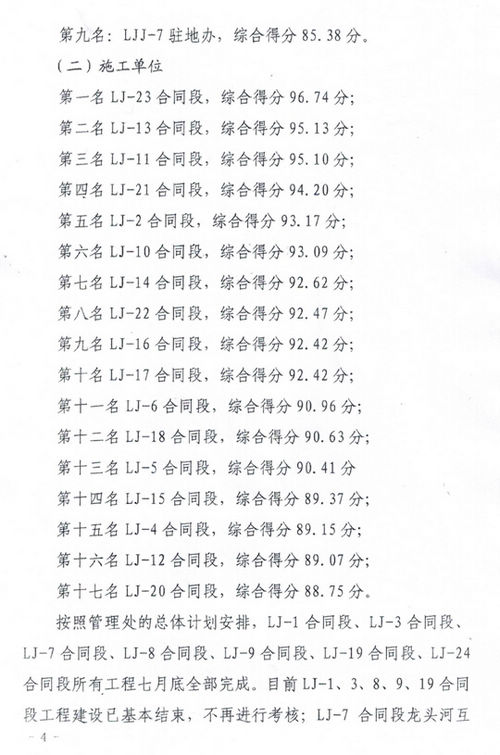 第九名：LJJ-7 驻地办，综合得分 85.38 分。
（二）施工单位
第一名 LJ-23 合同段，综合得分 96.74 分；
第二名 LJ-13 合同段，综合得分 95.13 分；
第三名 LJ-11 合同段，综合得分 95.10 分；
第四名 LJ-21 合同段，综合得分 94.20 分；
第五名 LJ-2 合同段，综合得分 93.17 分；
第六名 LJ-10 合同段，综合得分 93.09 分；
第七名 LJ-14 合同段，综合得分 92.62 分；
第八名 LJ-22 合同段，综合得分 92.47 分；
第九名 LJ-16 合同段，综合得分 92.42 分；
第十名 LJ-17 合同段，综合得分 92.42 分；
第十一名 LJ-6 合同段，综合得分 90.96 分；
第十二名 LJ-18 合同段，综合得分 90.63 分；
第十三名 LJ-5 合同段，综合得分 90.41 分
第十四名 LJ-15 合同段，综合得分 89.37 分；
第十五名 LJ-4 合同段，综合得分 89.15 分；
第十六名 LJ-12 合同段，综合得分 89.07 分；
第十七名 LJ-20 合同段，综合得分 88.75 分。
按照管理处的总体计划安排，LJ-1 合同段、LJ-3 合同段、
LJ-7 合同段、LJ-8 合同段、LJ-9 合同段、LJ-19 合同段、LJ-24
合同段所有工程七月底全部完成。目前 LJ-1、3、8、9、19 合同
段工程建设已基本结束，不再进行考核；LJ-7 合同段龙头河互
- 4 -